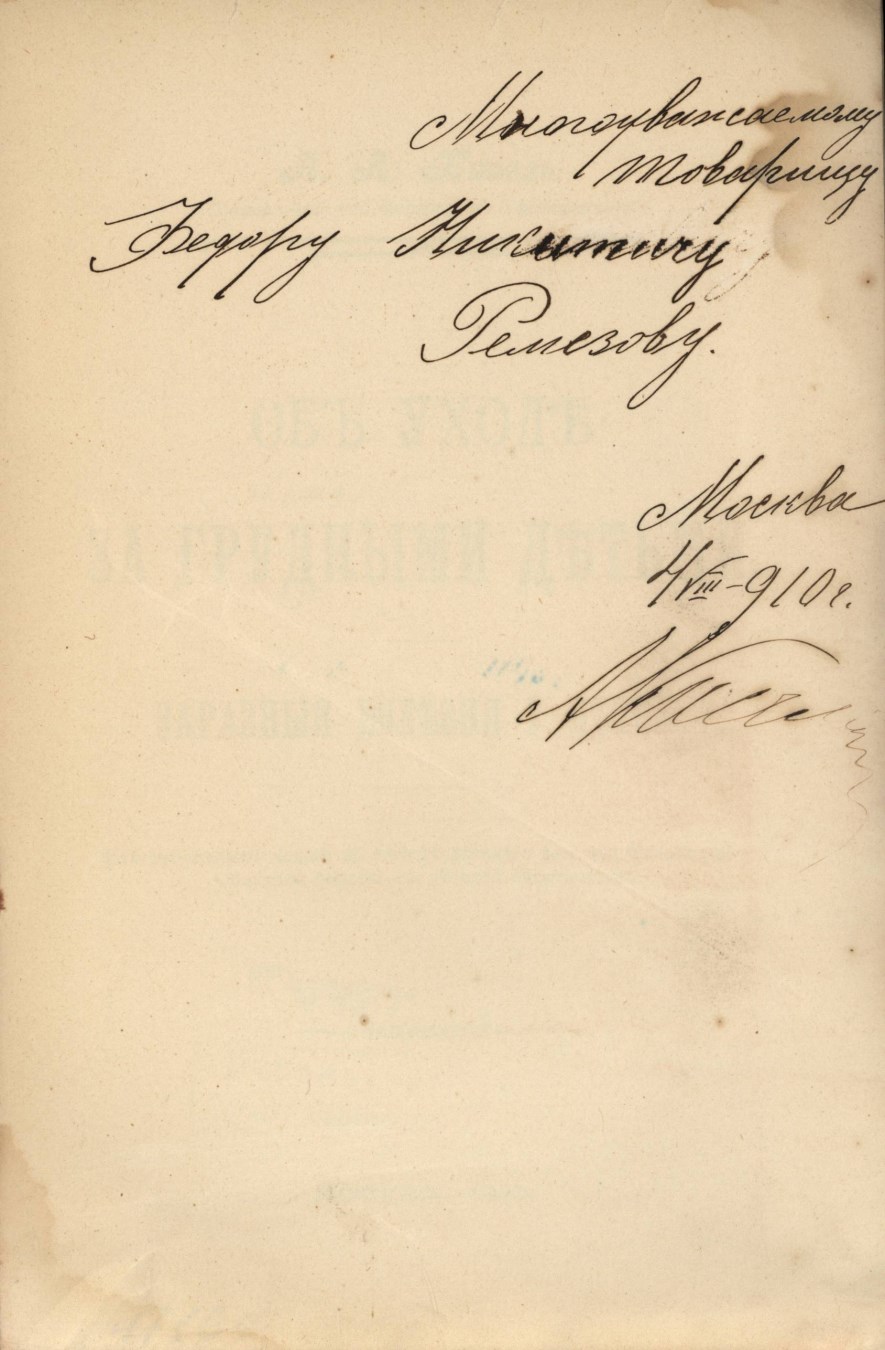 Многоуважаемому
товарищу
Федору Никитичу
Ремезову.
Москва
4/VIII-910 г.